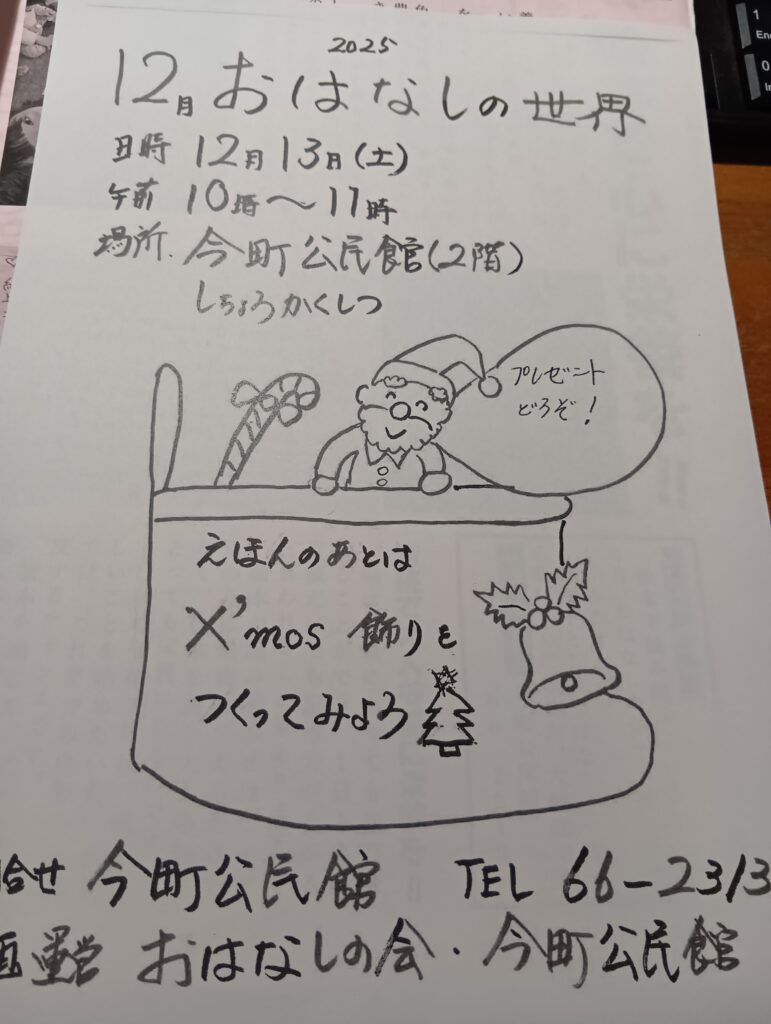 2025
12月おはなしの世界
日時 12月13日(土)
午前 10時～11時
場所. 今町公民館(2階)
しちょうかくしつ
プレゼント
どうぞ!
えほんのあとは
X'mas 飾りを
つくってみよう
合せ 今町公民館 TEL 66-2313
運営 おはなしの会・今町公民館
1
End
0